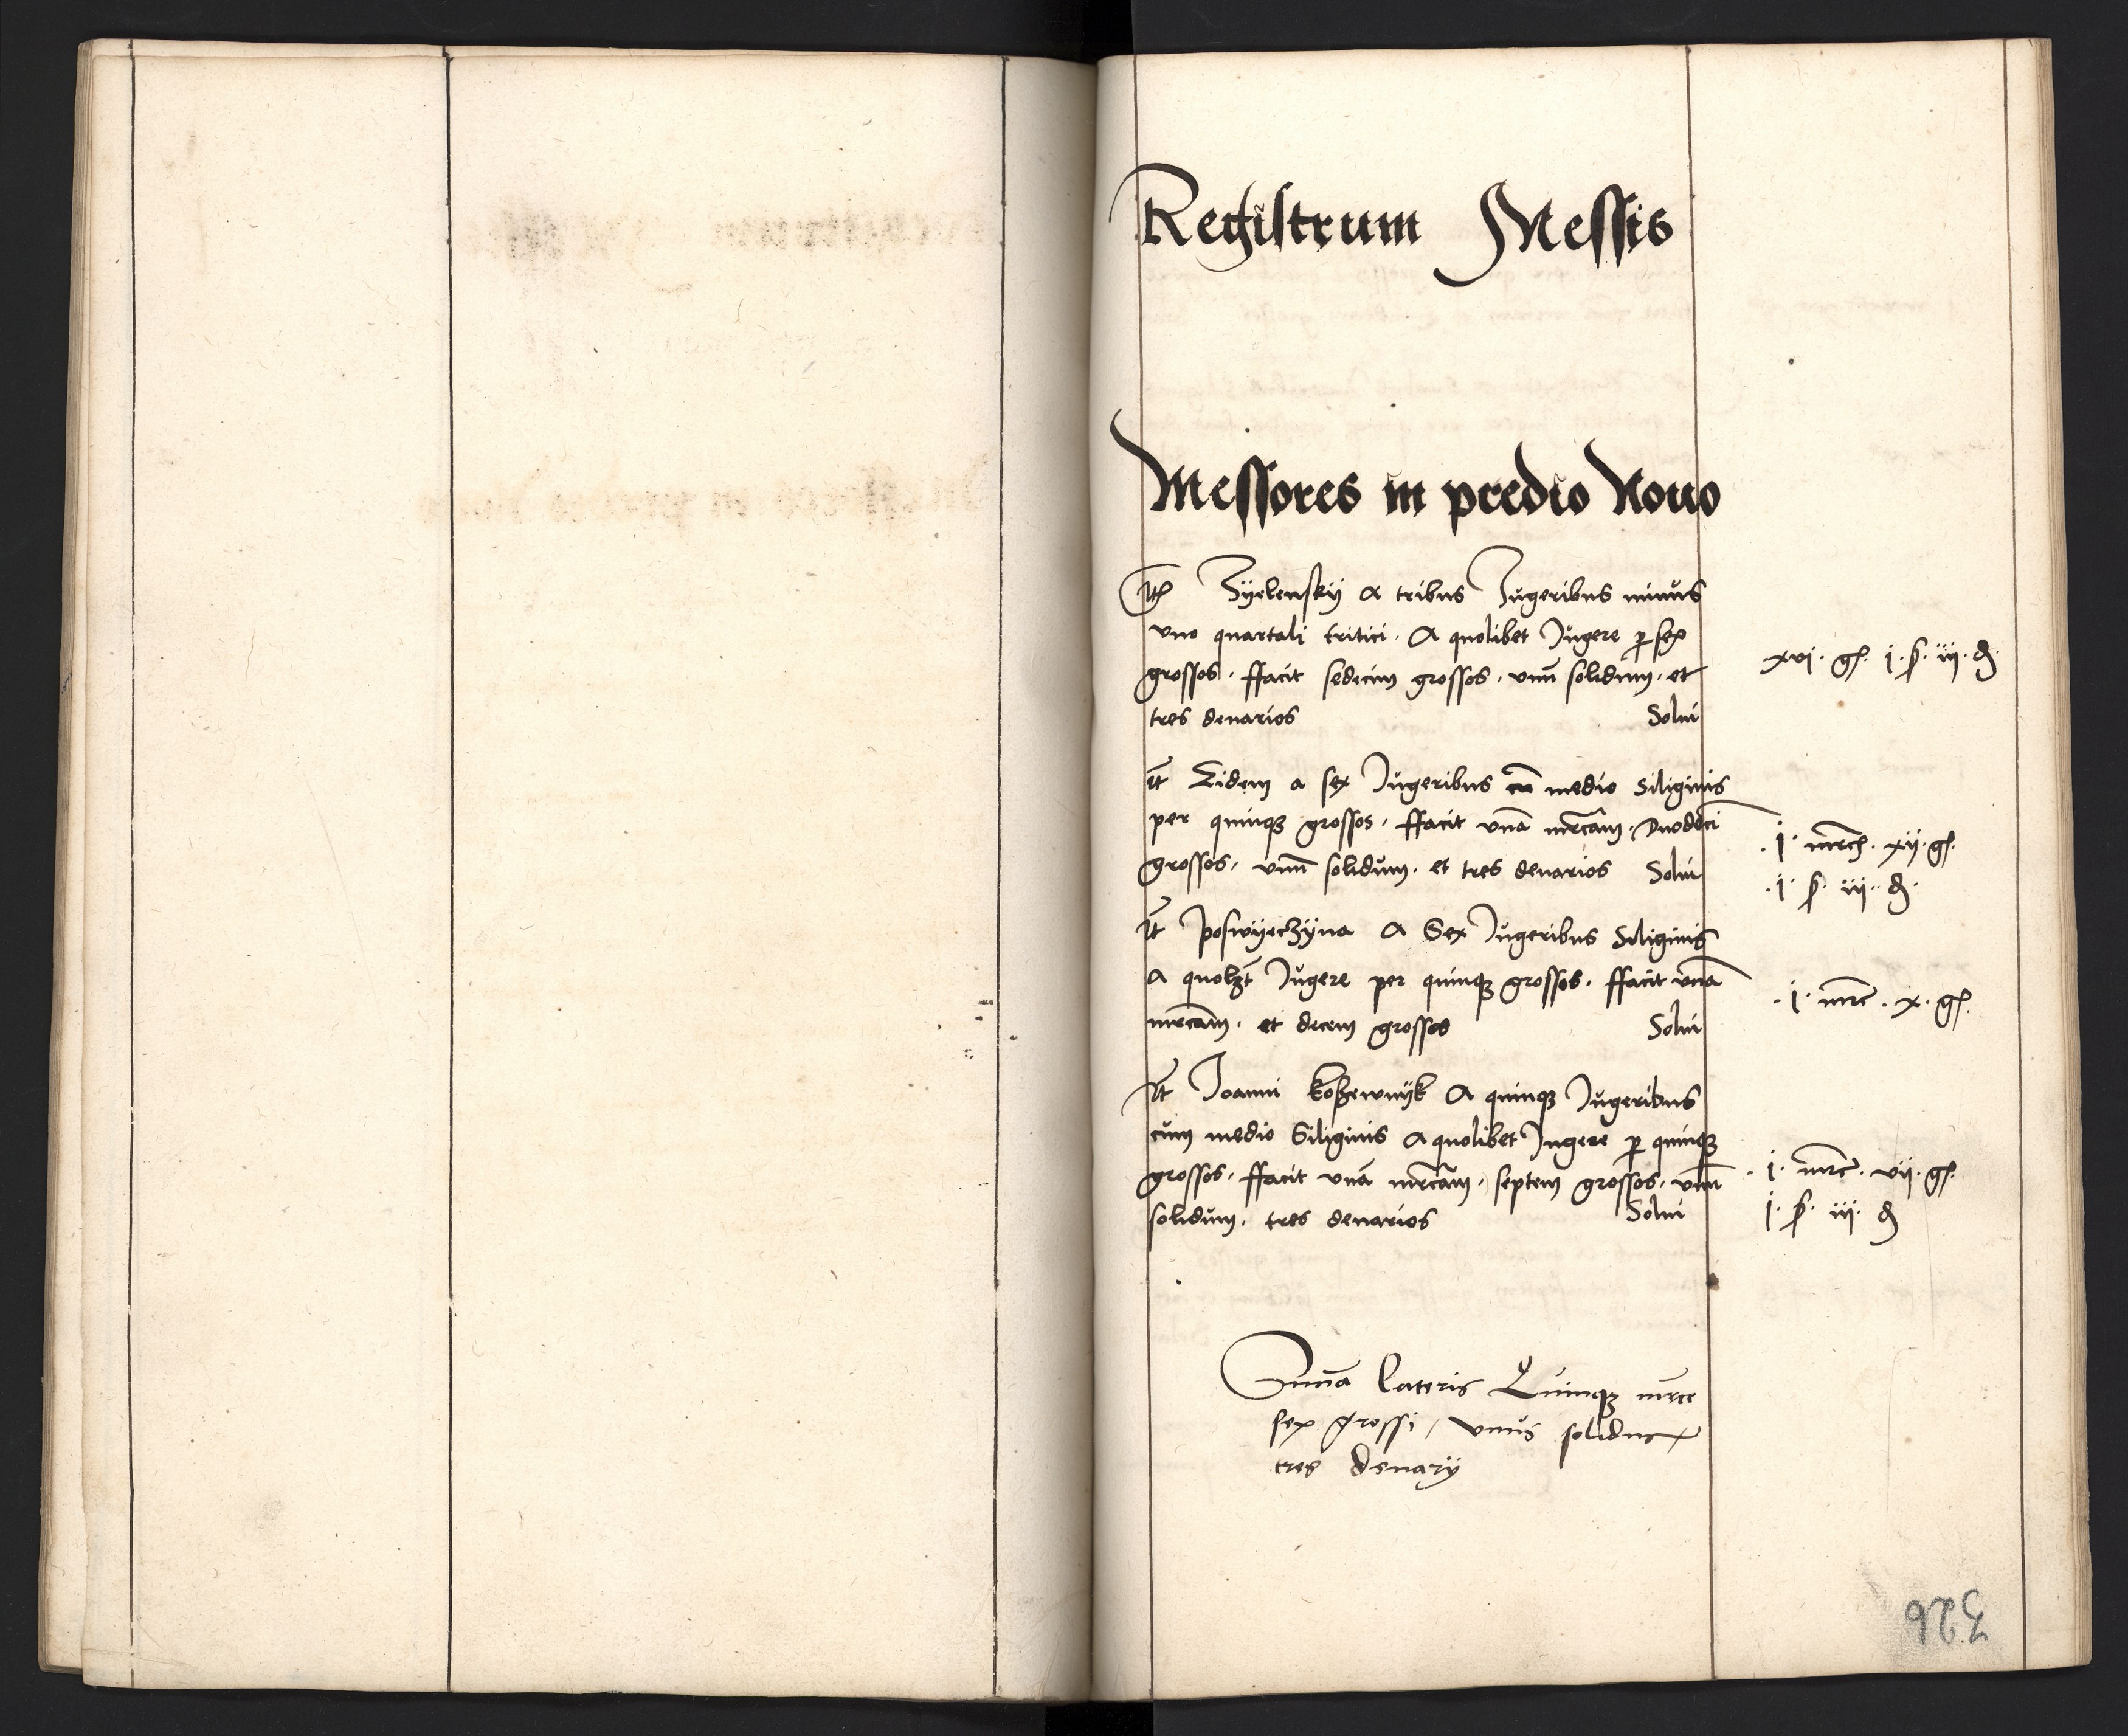 Registrum Messis
Messores in predio Nouo
Itē Zyelensky A tribus Iugeribus minus
vno quartali tritici. A quolibet Iugere p sex
grossos. ffacit sedecim grossos. vnū solidum. et
tres denarios Solui
xvj. gſ. j. ſ. iij. ₰.
It Eidem a sex Iugeribus cū medio Siliginis
per quinqꝫ grossos. ffacit vnā mrcam. Duodeci
grossos. vnū solidum. et tres denarios Solui
.j. mrcſ. xij. gſ.
.j. ſ. iij. ₰.
It Poswyeczyna A Sex Iugeribus Siliginis
A quolꝫt Iugere per quinqꝫ grossos. ffacit vnā
mrcam. et decem grossos Solui
.j. mrc. x. gſ.
It Joanni Koßewnyk A quinqꝫ Iugeribus
cum medio Siliginis A quolibet Iugere p quinqꝫ
grossos. ffacit vnā mrcam. septem grossos. vnū
solidum. tres denarios Solui
.j. mrc. vij. gſ.
j. ſ. iij. ₰
Sum̄a lateris Quinqꝫ mrce
sex grossi / vnus solidus
tres denarij
326